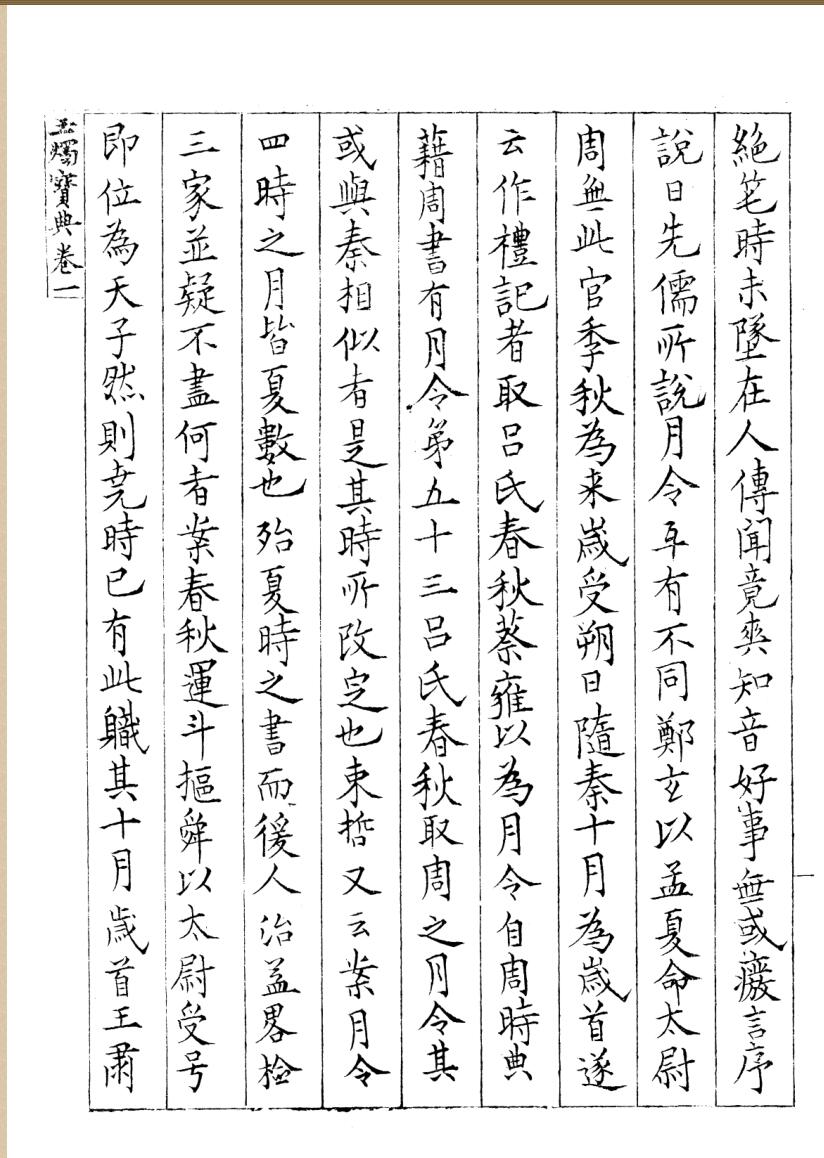 絶笔時未墜在人傳聞竟爽知音好事無或癈言序
說曰先儒所說月令㸦有不同鄭玄以孟夏命太尉
周無此官季秋為来歳受朔日隨秦十月為歳首遂
云作禮記者取吕氏春秋蔡雍以為月令自周時典
藉周書有月令第五十三吕氏春秋取周之月令其
或與秦相似者是其時所改定也束晢又云案月令
四時之月皆夏數也殆夏時之書而後人治益畧檢
三家並疑不盡何者案春秋運斗摳舜以太尉受号
即位為天子然則尭時已有此職其十月歳首王肅
玉燭寳典卷一
一